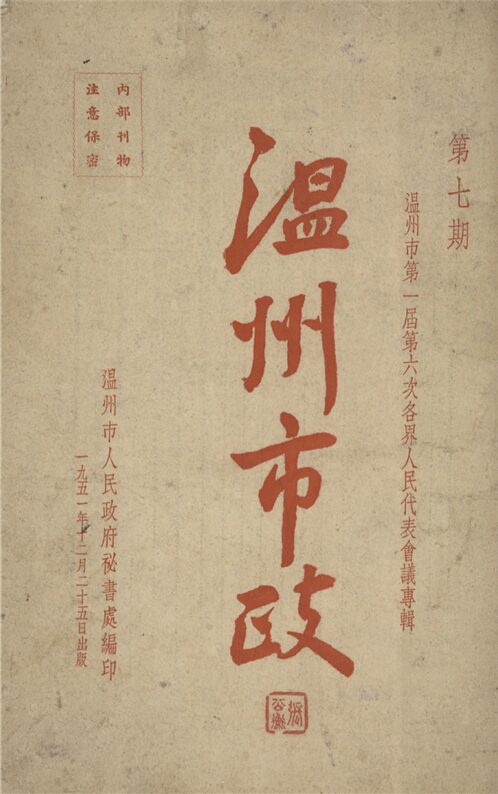 第七期
温州市第一届第六次各界人民代表會議專輯
温州市政
内部刊物
注意保密
温州市人民政府祕書處編印
一九五一年十二月二十五日出版